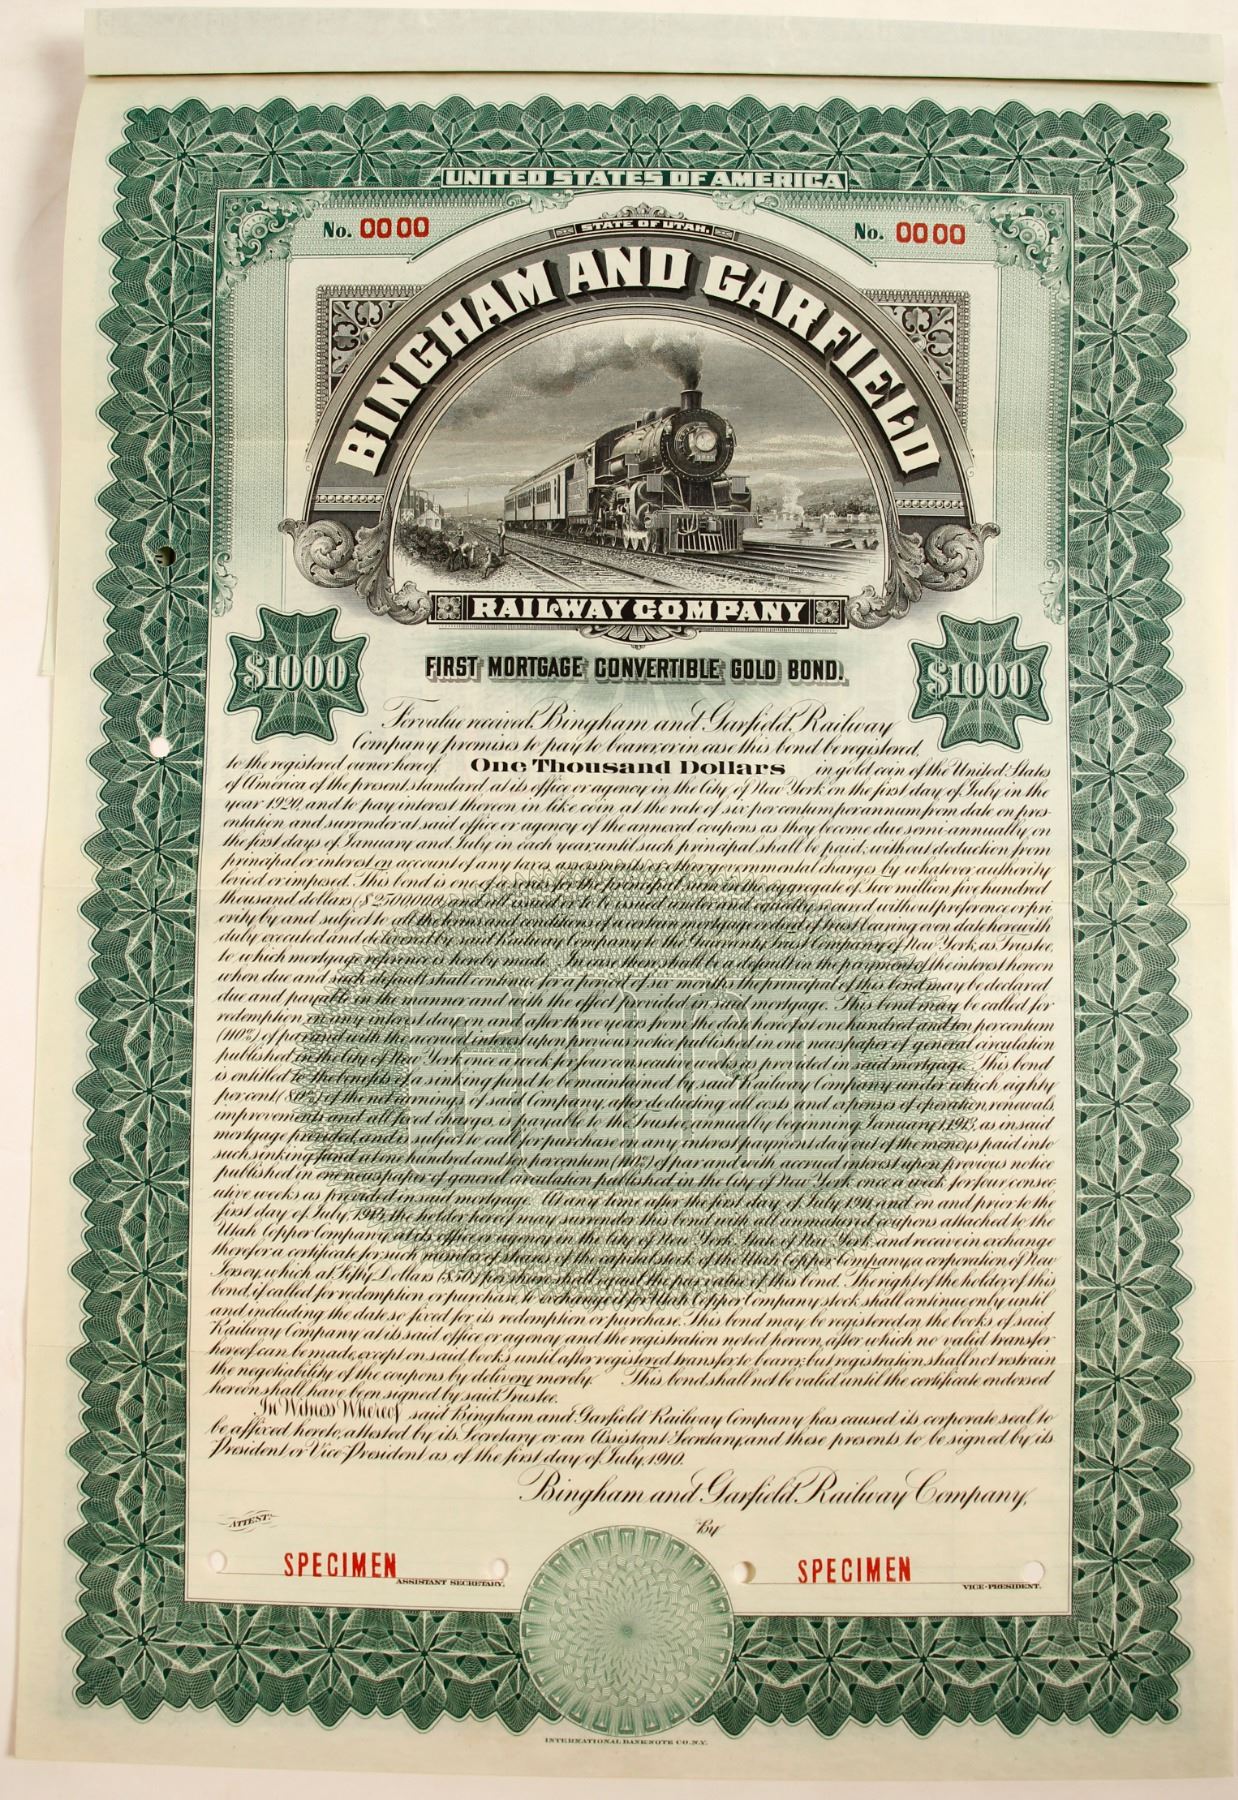 UNITED STATES OF AMERICA
No. 0000
No. 0000
STATE OF UTAH.
BINGHAM AND GARFIELD
RAILWAY COMPANY
$1000
$1000
FIRST MORTGAGE CONVERTIBLE GOLD BOND.
For value received, Bingham and Garfield Railway
Company promises to pay to bearer, or in case this bond be registered,
to the registered owner hereof, One Thousand Dollars in gold coin of the United States
of America of the present standard, at its office or agency in the City of New York on the first day of July, in the
year 1920, and to pay interest thereon in like coin at the rate of six per centum per annum from date on pres-
entation and surrender at said office or agency of the annexed coupons as they become due semi-annually, on
the first days of January and July in each year, until such principal shall be paid, without deduction from
principal or interest on account of any taxes, assessments or other governmental charges by whatever authority
levied or imposed. This bond is one of a series for the principal sum in the aggregate of Two million five hundred
thousand dollars ($2500000), and all issued or to be issued under and equally secured without preference or pri-
ority by and subject to all the terms and conditions of a certain mortgage or deed of trust bearing even date herewith
duly executed and delivered by said Railway Company to the Guaranty Trust Company of New York, as Trustee,
to which mortgage reference is hereby made. In case there shall be a default in the payment of the interest hereon
when due and such default shall continue for a period of six months the principal of this bond may be declared
due and payable in the manner and with the effect provided in said mortgage. This bond may be called for
redemption on any interest day on and after three years from the date hereof at one hundred and ten per centum
(110%) of par and with the accrued interest upon previous notice published in one newspaper of general circulation
published in the City of New York once a week for four consecutive weeks as provided in said mortgage. This bond
is entitled to the benefits of a sinking fund to be maintained by said Railway Company under which eighty
per cent (80%) of the net earnings of said Company, after deducting all costs and expenses of operation, renewals,
improvements and all fixed charges, is payable to the Trustee annually beginning January 1, 1913, as in said
mortgage provided, and is subject to call for purchase on any interest payment day out of the moneys paid into
such sinking fund at one hundred and ten per centum (110%) of par and with accrued interest upon previous notice
published in one newspaper of general circulation published in the City of New York once a week for four consec-
utive weeks as provided in said mortgage. At any time after the first day of July 1911, and on and prior to the
first day of July, the holder hereof may surrender this bond with all unmatured coupons attached to the
Utah Copper Company at its office or agency in the City of New York, State of New York, and receive in exchange
therefor a certificate for such number of shares of the capital stock of the Utah Copper Company, a corporation of New
Jersey, which at Fifty Dollars ($50) per share shall equal the par value of this bond. The right of the holder of this
bond, if called for redemption or purchase, to exchange it for Utah Copper Company stock shall continue only until
and including the date so fixed for its redemption or purchase. This bond may be registered on the books of said
Railway Company at its said office or agency, and the registration noted hereon, after which no valid transfer
hereof can be made, except on said books until after registered transfer to bearer, but registration shall not restrain
the negotiability of the coupons by delivery merely. This bond shall not be valid until the certificate endorsed
hereon shall have been signed by said Trustee.
In Witness Whereof said Bingham and Garfield Railway Company has caused its corporate seal to
be affixed hereto, attested by its Secretary or an Assistant Secretary, and these presents to be signed by its
President or Vice-President as of the first day of July, 1910.
Bingham and Garfield Railway Company,
ATTEST:
By
SPECIMEN
ASSISTANT SECRETARY.
SPECIMEN
VICE-PRESIDENT.
INTERNATIONAL BANKNOTE CO. N.Y.